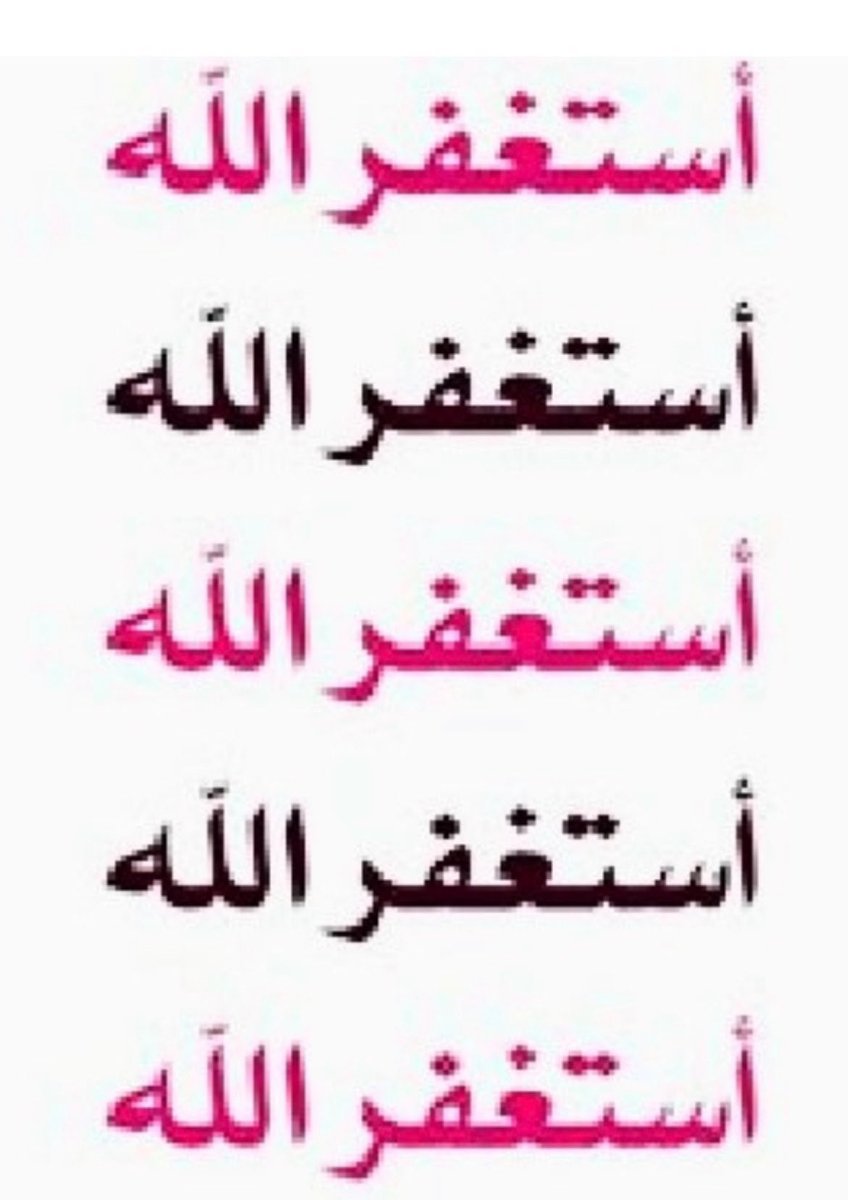 أستغفر الله
أستغفر الله
أستغفر الله
أستغفر الله
أستغفر الله